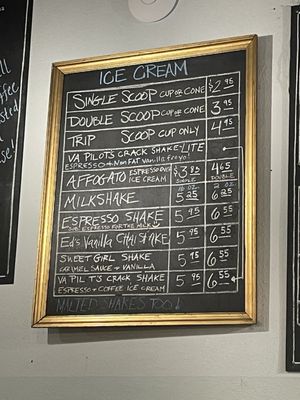 ICE CREAM
SINGLE SCOOP CUP OR CONE $2.95
DOUBLE SCOOP CUP OR CONE 3.95
TRIP SCOOP CUP ONLY 4.95
VA PILOTS CRACK SHAKE-LITE
ESPRESSO + Non FAT Vanilla froyo!
AFFOGATO ESPRESSO OVER ICE CREAM $3.85 SINGLE 4.65 DOUBLE
MILKSHAKE 16 OZ 5.25 OZ 6.25
ESPRESSO SHAKE 5.95 6.55
SUB ESPRESSO FOR THE MILK
Ed's Vanilla Chai SHAKE 5.95 6.55
SWEET GIRL SHAKE 5.95 6.55
CARAMEL SAUCE + VANILLA
VA PILOTS CRACK SHAKE 5.95 6.55
ESPRESSO + COFFEE ICE CREAM
MALTED SHAKES TOO!